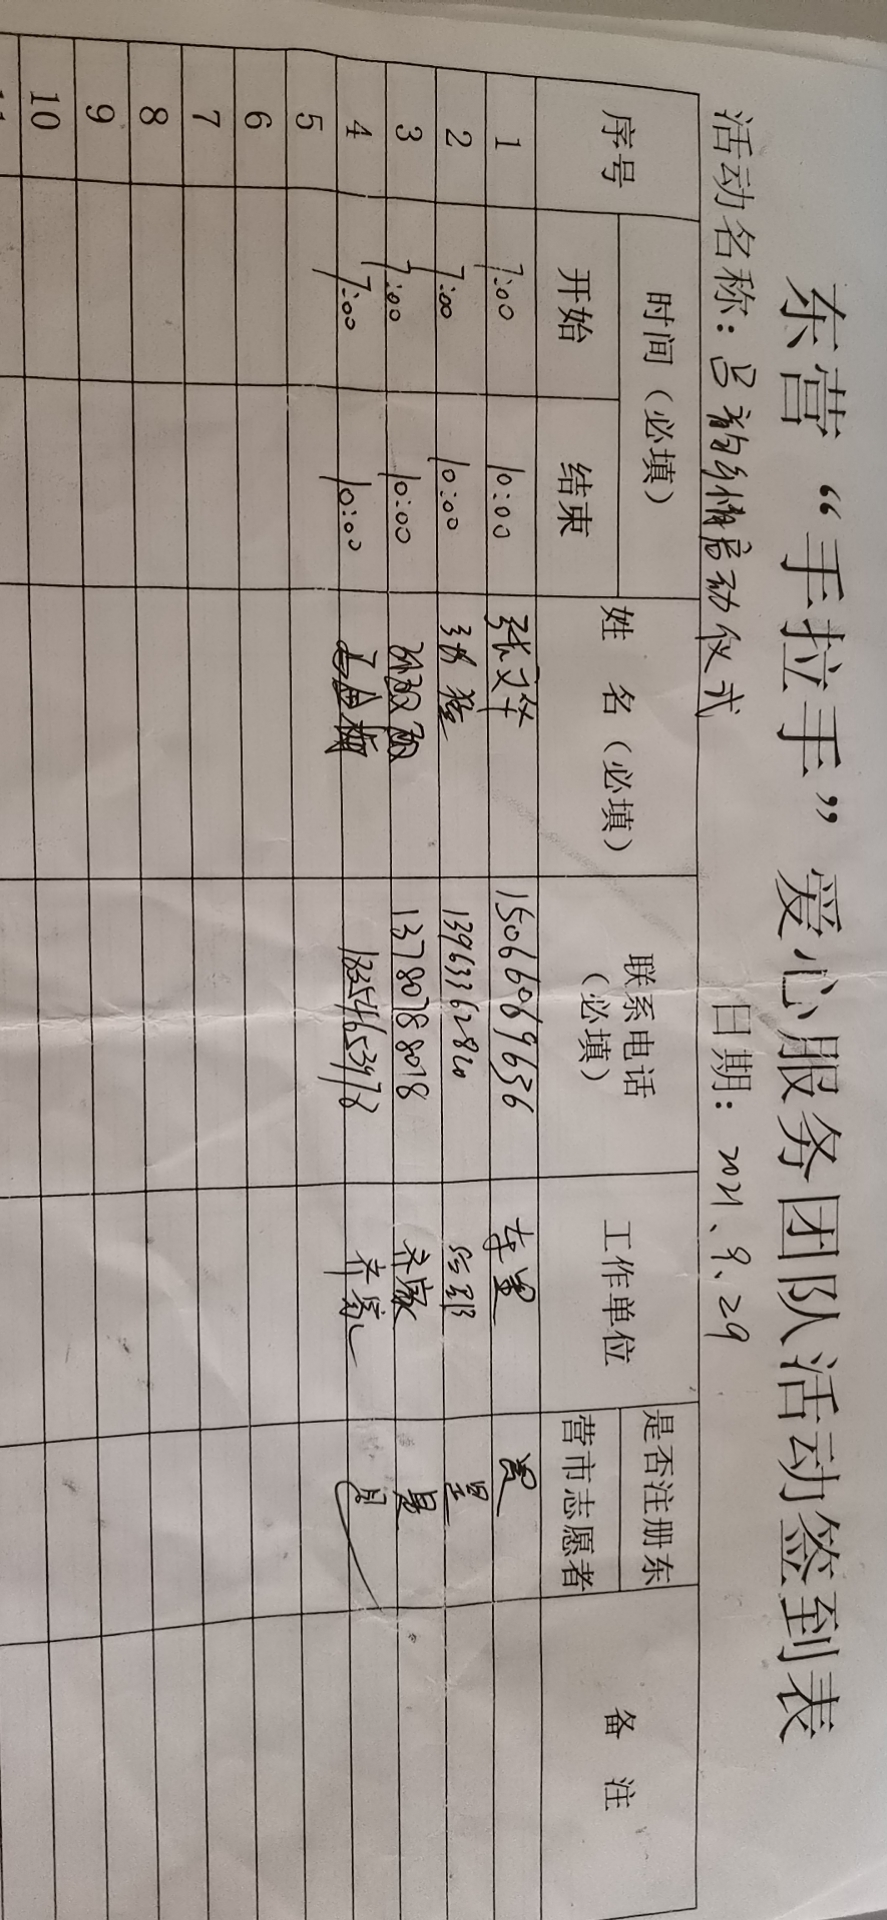 东营“手拉手”爱心服务团队活动签到表
活动名称：吕剧乡情启动仪式 日期：2021、9、29
序号 时间（必填） 姓 名（必填） 联系电话（必填） 工作单位 是否注册东营市志愿者 备 注
开始 结束
1 7:00 10:00 张文华 15066069636 是
2 7:00 10:00 13963362820 是
3 7:00 10:00 13780788078 是
4 7:00 10:00 18354653978 是
5
6
7
8
9
10
11